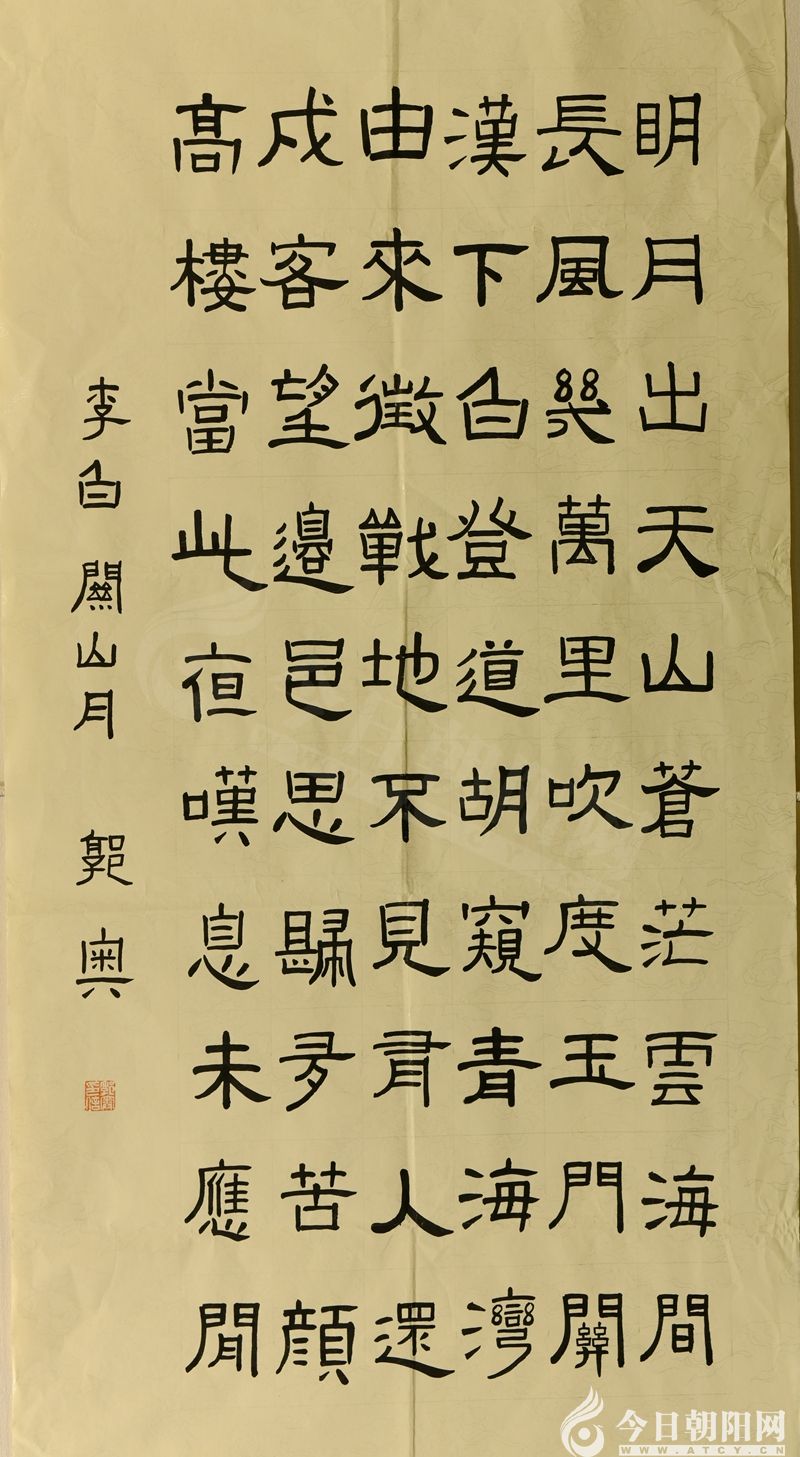 明月出天山蒼茫雲海間
長風幾萬里吹度玉門關
漢下白登道胡窺青海灣
由來徵戰地不見有人還
戍客望邊邑思歸多苦顏
髙樓當此夜嘆息未應閒
李白 關山月 郭奧
今日朝阳网
WWW.ATCY.CN